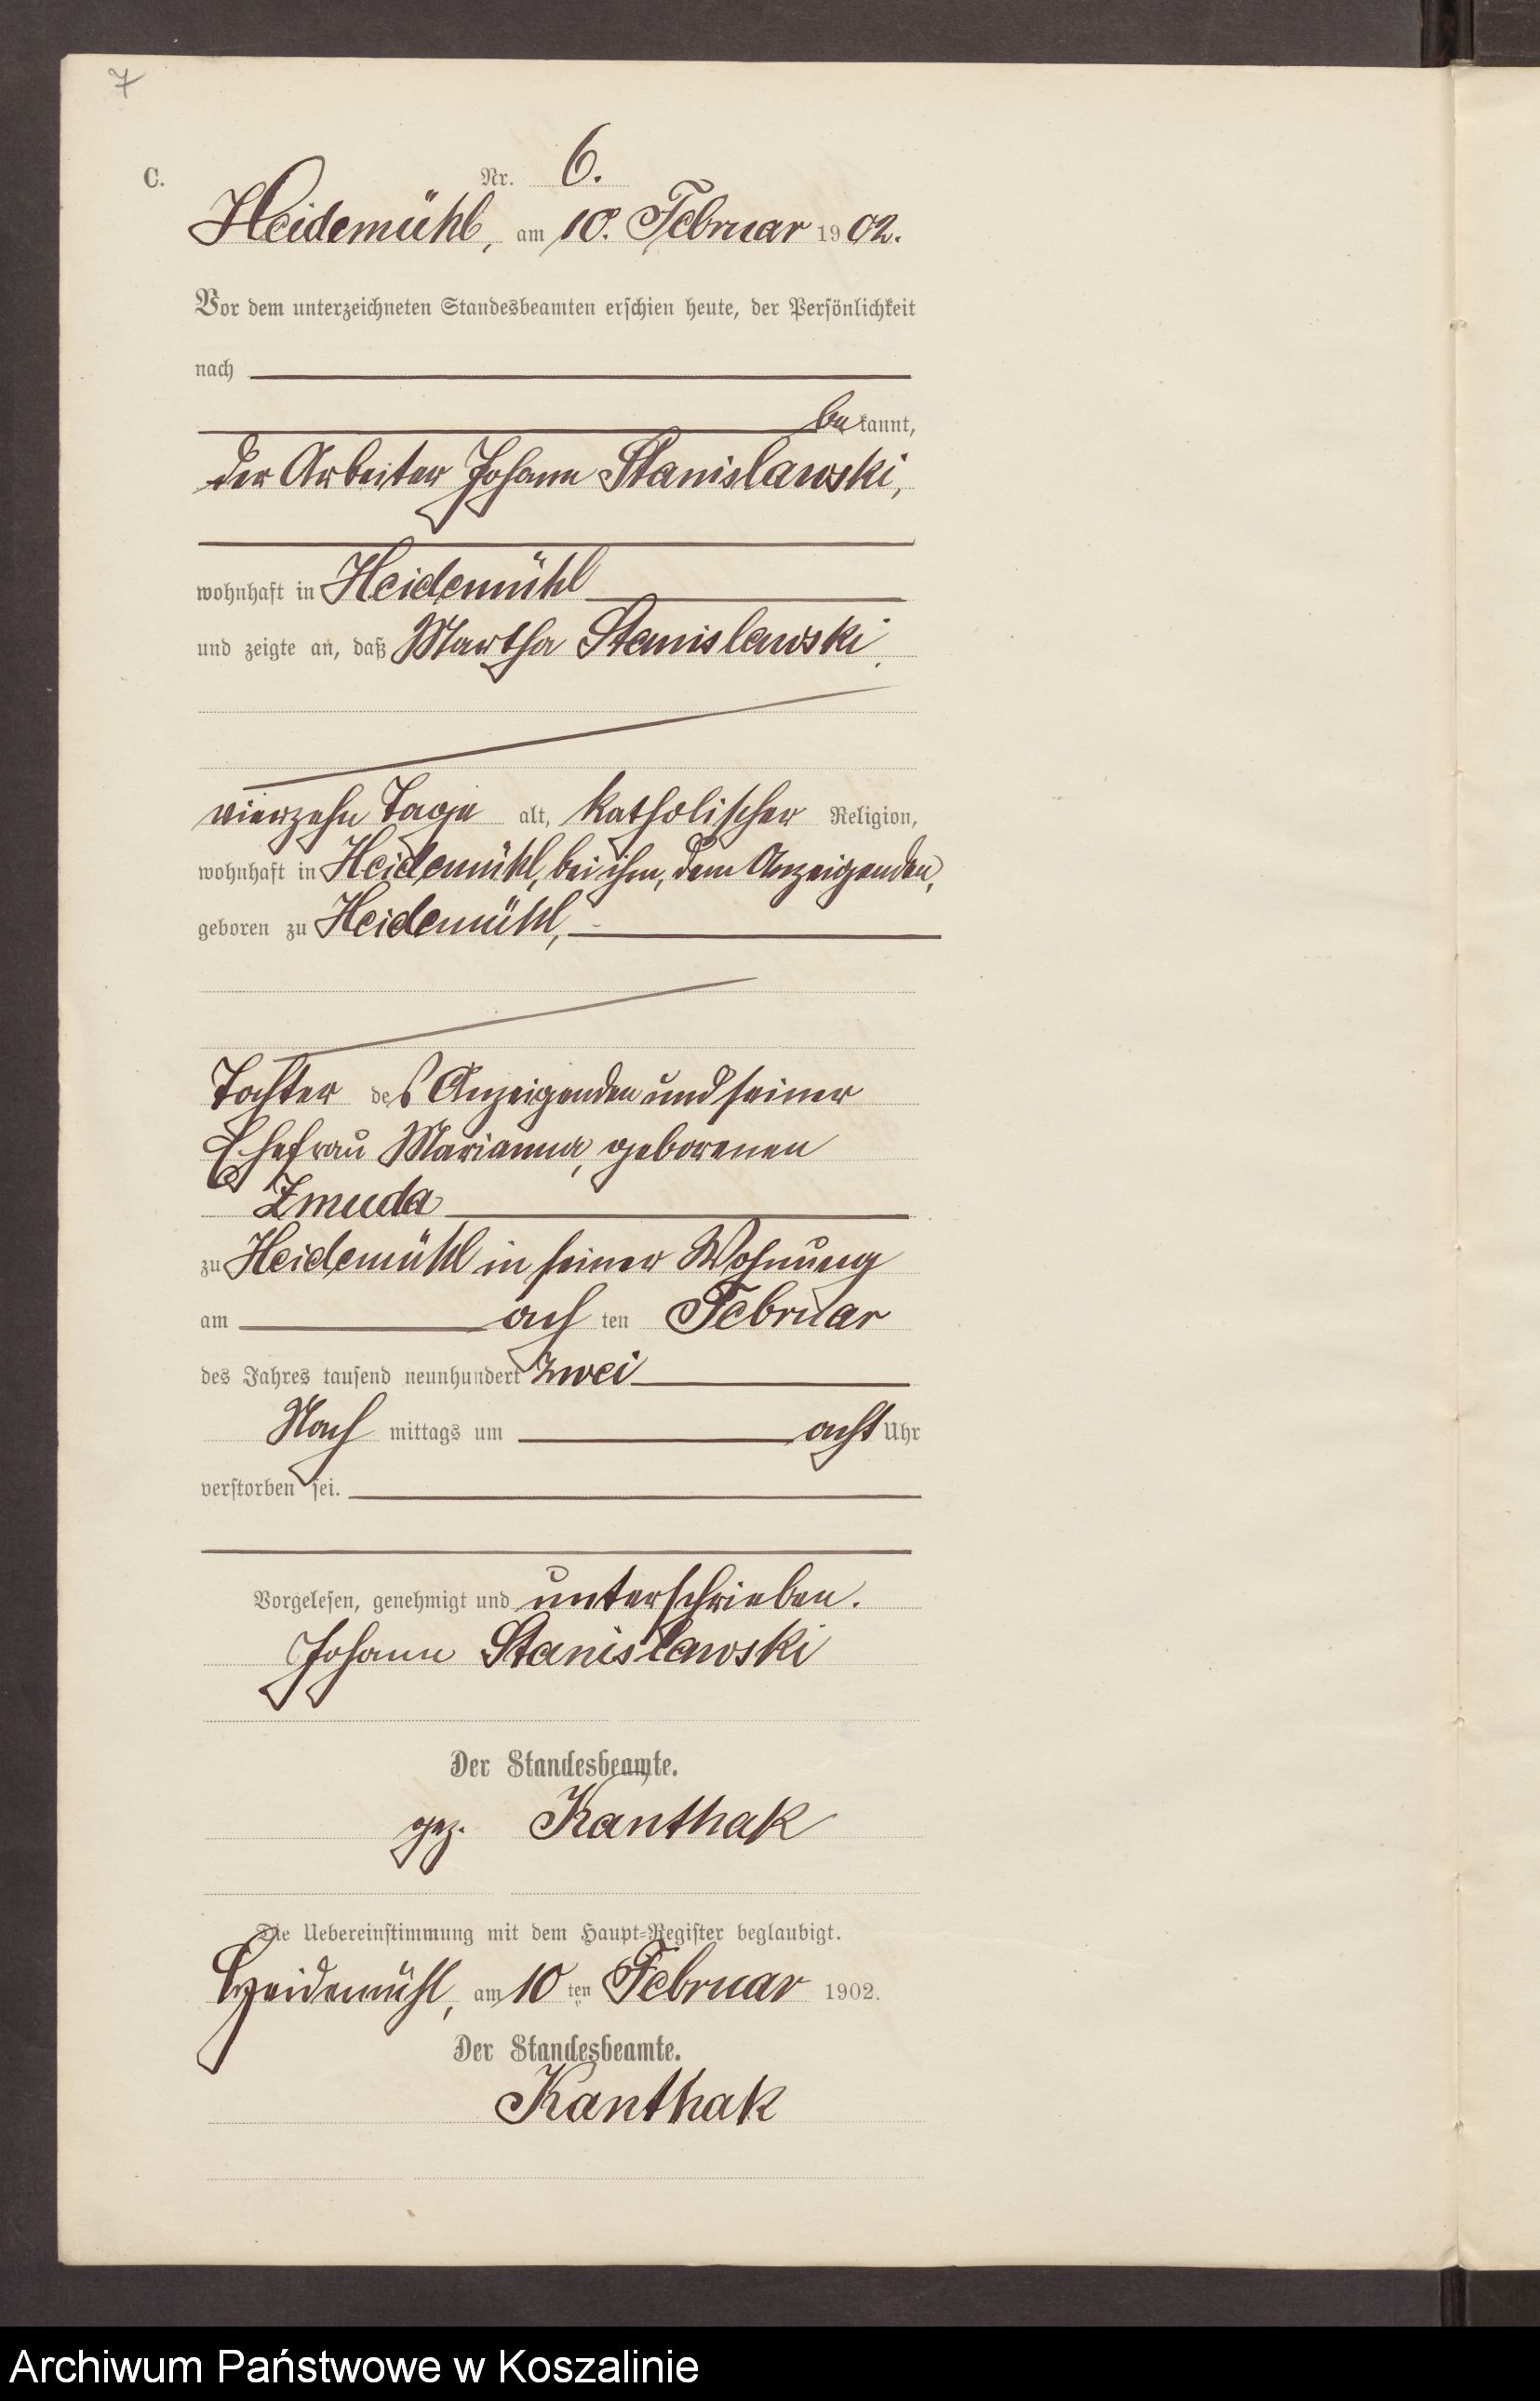 7
C.
Nr. 6.
Heidemühl, am 10. Februar 1902.
Vor dem unterzeichneten Standesbeamten erschien heute, der Persönlichkeit
nach
bekannt,
der Arbeiter Johann Stanislawski,
wohnhaft in Heidemühl
und zeigte an, daß Martha Stanislawski,
vierzehn Tage alt, katholischer Religion,
wohnhaft in Heidemühl, bei ihm, dem Anzeigenden,
geboren zu Heidemühl,
Tochter des Anzeigenden und seiner
Ehefrau Marianna, geborenen
Zmuda
zu Heidemühl in seiner Wohnung
am achten Februar
des Jahres tausend neunhundert zwei
Nachmittags um acht Uhr
verstorben sei.
Vorgelesen, genehmigt und unterschrieben.
Johann Stanislawski
Der Standesbeamte.
gez. Kanthak
Die Uebereinstimmung mit dem Haupt-Register beglaubigt.
Heidemühl, am 10ten Februar 1902.
Der Standesbeamte.
Kanthak
Archiwum Państwowe w Koszalinie